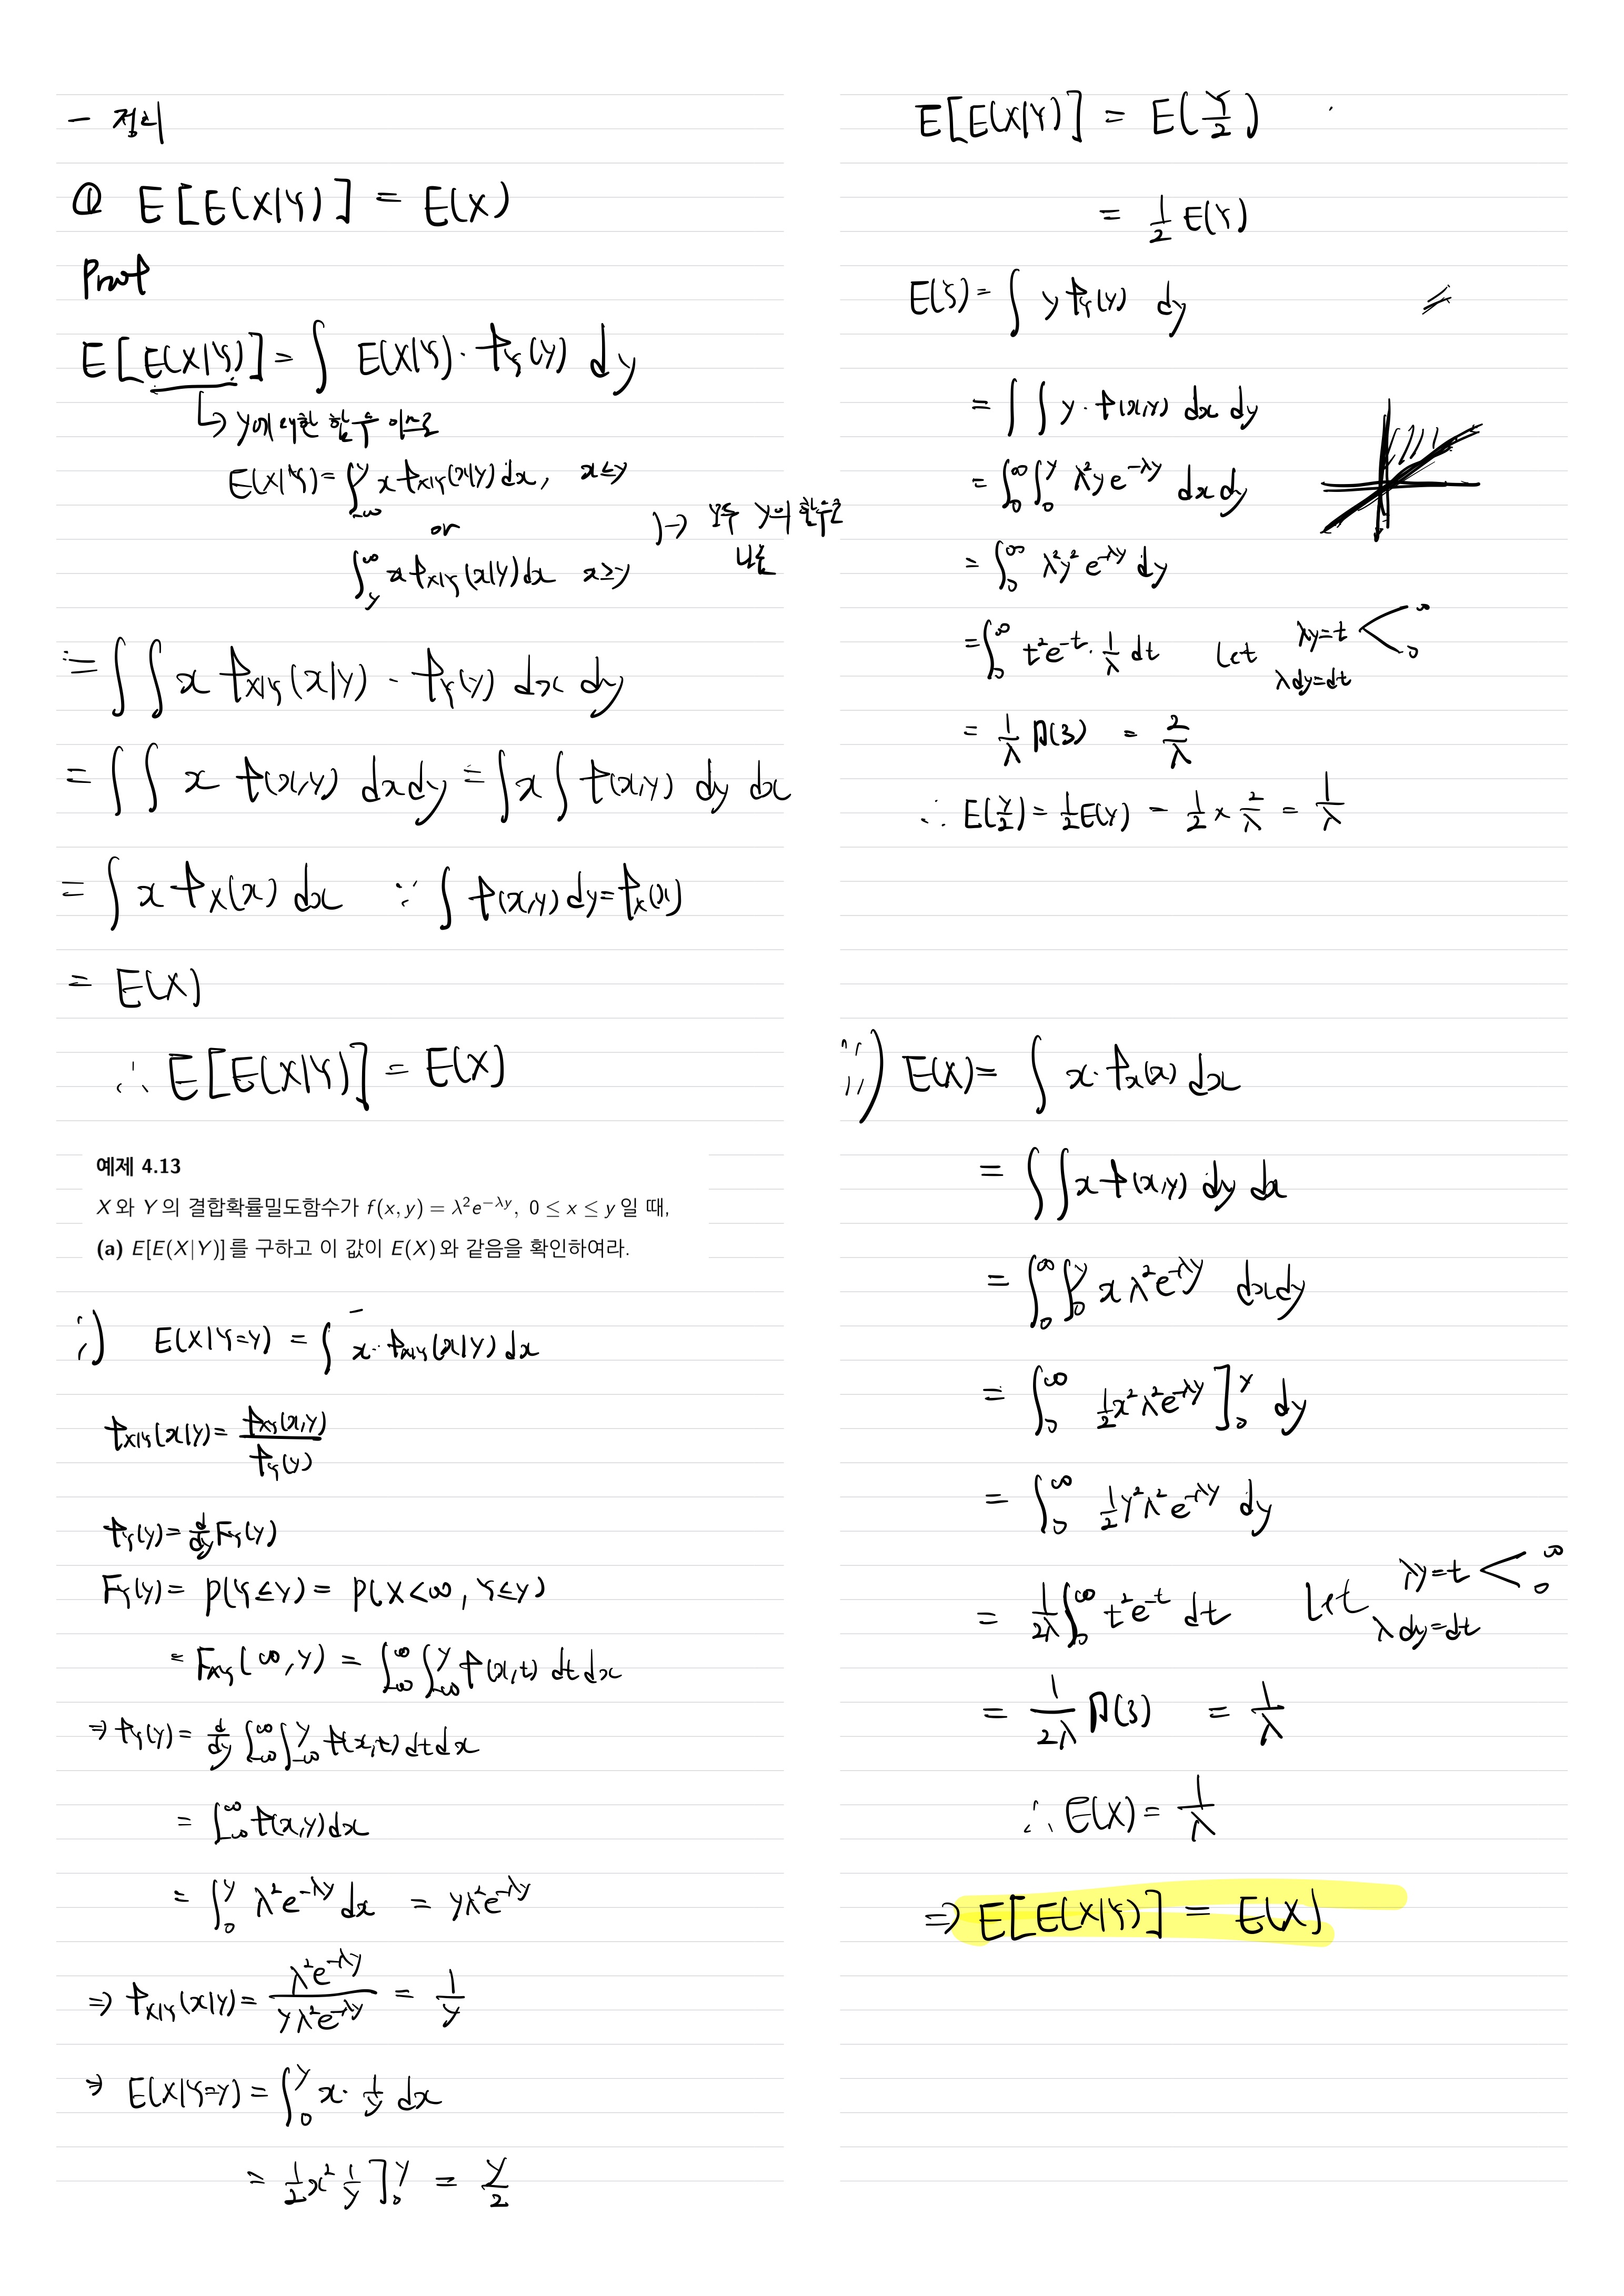 - 정리
① E[E(X|Y)] = E(X)
Proof
E[E(X|Y)] = ∫ E(X|Y)·f_Y(y) dy
↳ y에 대한 함수 이므로
E(X|Y) = ∫_{-∞}^{y} x f_{X|Y}(x|y) dx, x≤y
or
∫_{y}^{∞} x f_{X|Y}(x|y) dx x≥y
)→ 모두 y의 함수로
나옴
= ∫∫ x f_{X|Y}(x|y) · f_Y(y) dx dy
= ∫∫ x f(x,y) dxdy = ∫x∫ f(x,y) dy dx
= ∫ x f_X(x) dx ∵ ∫ f(x,y) dy = f_X(x)
= E(X)
∴ E[E(X|Y)] = E(X)
예제 4.13
X 와 Y 의 결합확률밀도함수가 f(x, y) = λ²e^{−λy}, 0 ≤ x ≤ y 일 때,
(a) E[E(X|Y)] 를 구하고 이 값이 E(X) 와 같음을 확인하여라.
i) E(X|Y=y) = ∫ x·f_{X|Y}(x|y) dx
f_{X|Y}(x|y) = f_{XY}(x,y) / f_Y(y)
f_Y(y) = d/dy F_Y(y)
F_Y(y) = P(Y≤y) = P(X<∞, Y≤y)
= F_{XY}(∞,y) = ∫_{-∞}^{∞}∫_{-∞}^{y} f(x,t) dt dx
⇒ f_Y(y) = d/dy ∫_{-∞}^{∞}∫_{-∞}^{y} f(x,t) dt dx
= ∫_{-∞}^{∞} f(x,y) dx
= ∫_0^y λ²e^{-λy} dx = yλ²e^{-λy}
⇒ f_{X|Y}(x|y) = λ²e^{-λy} / yλ²e^{-λy} = 1/y
⇒ E(X|Y=y) = ∫_0^y x·1/y dx
= 1/2 x² 1/y ]_0^y = y/2
E[E(X|Y)] = E(Y/2)
= 1/2 E(Y)
E(Y) = ∫ y f_Y(y) dy
= ∫∫ y·f(x,y) dx dy
= ∫_0^∞∫_0^y λ²y e^{-λy} dx dy
= ∫_0^∞ λ²y² e^{-λy} dy
= ∫_0^∞ t²e^{-t}·1/λ dt Let λy=t < ∞ 0
λdy=dt
= 1/λ Γ(3) = 2/λ
∴ E(Y/2) = 1/2 E(Y) = 1/2 × 2/λ = 1/λ
ii) E(X) = ∫ x·f_X(x) dx
= ∫∫ x f(x,y) dy dx
= ∫_0^∞∫_0^y x λ²e^{-λy} dxdy
= ∫_0^∞ 1/2 x²λ²e^{-λy} ]_0^y dy
= ∫_0^∞ 1/2 y²λ²e^{-λy} dy
= 1/2λ ∫_0^∞ t²e^{-t} dt Let λy=t < ∞ 0
λdy=dt
= 1/2λ Γ(3) = 1/λ
∴ E(X) = 1/λ
⇒ E[E(X|Y)] = E(X)